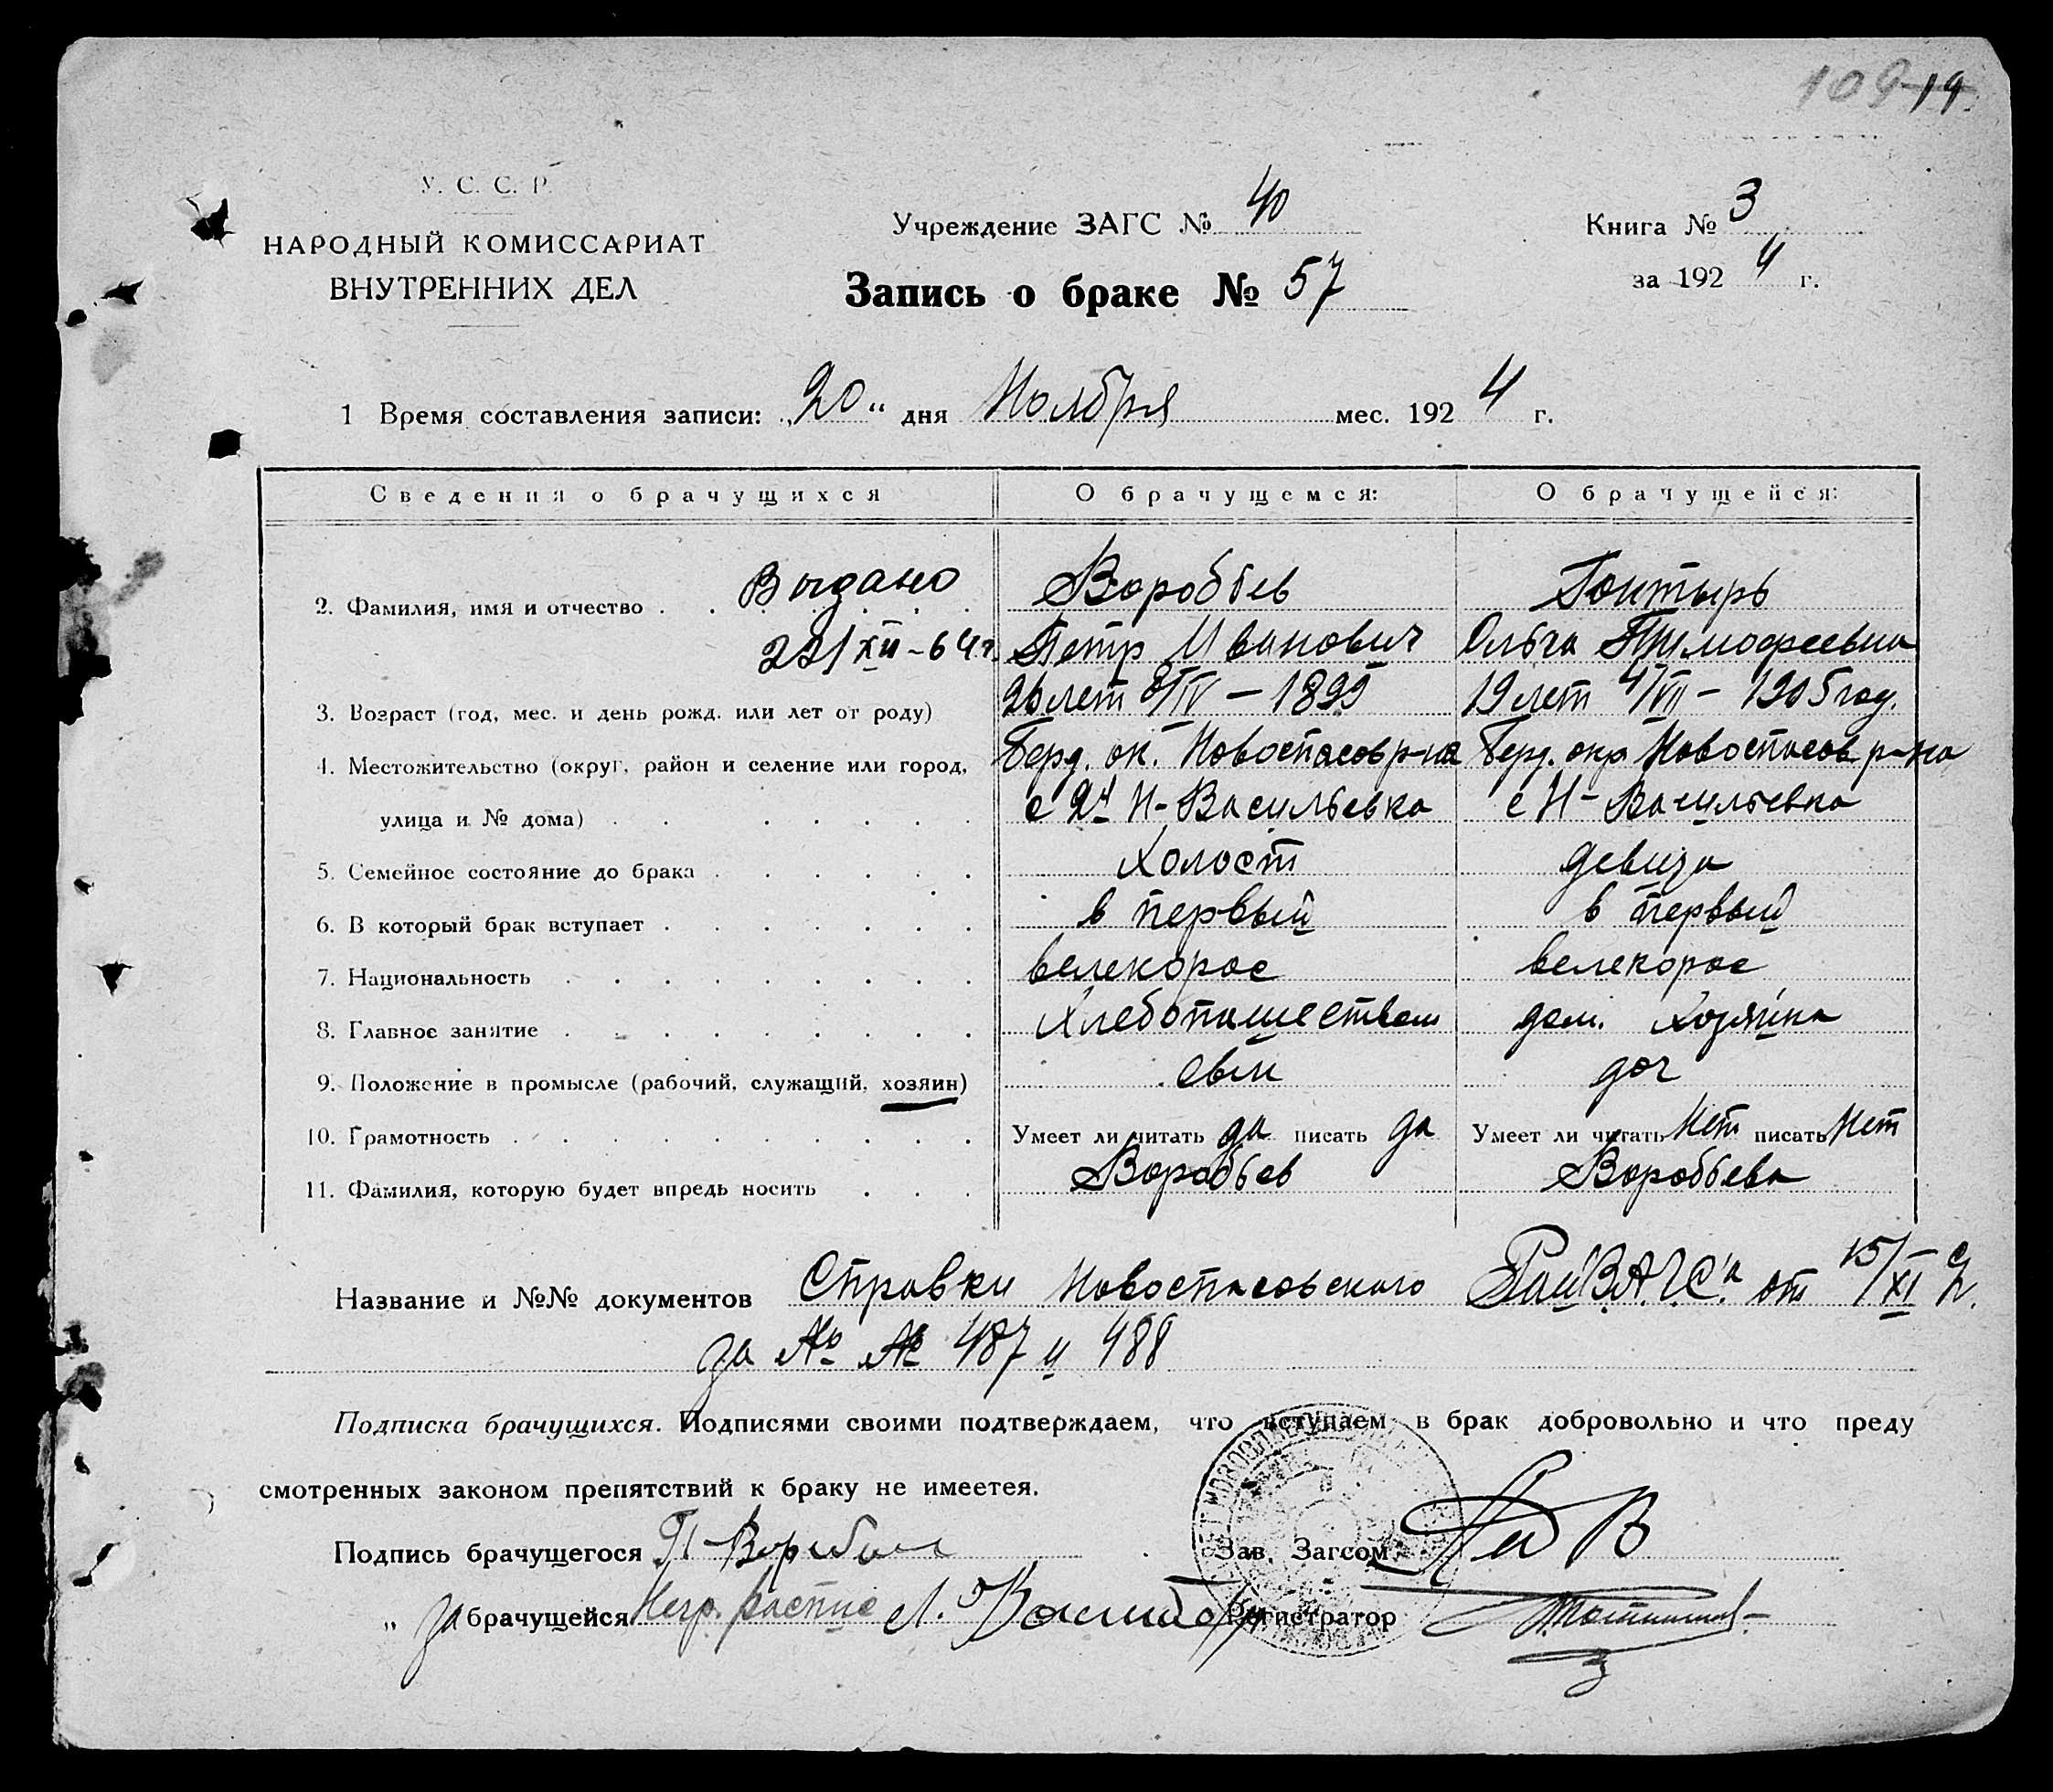 109 19.
У. С. С. Р.
НАРОДНЫЙ КОМИССАРИАТ
ВНУТРЕННИХ ДЕЛ
Учреждение ЗАГС № 40
Книга № 3
за 1924 г.
Запись о браке № 57
1 Время составления записи: „20“ дня Ноября мес. 1924 г.
Сведения о брачущихся О брачущемся: О брачущейся:
2. Фамилия, имя и отчество . . Выдано Воробьев Гонтырь
22/XII-64г. Петр Иванович Ольга Тимофеевна
3. Возраст (год, мес. и день рожд. или лет от роду) 26 лет 8/IV — 1899 19 лет 4/VII — 1905 год.
4. Местожительство (округ, район и селение или город, Берд. ок. Новоспасов р-на Берд. окр Новоспасов р-на
улица и № дома) с 2я Н-Васильевка с Н-Васильевка
5. Семейное состояние до брака Холост девица
6. В который брак вступает в первый в первый
7. Национальность велекорос велекорос
8. Главное занятие Хлебопашеством дом. Хозяйка
9. Положение в промысле (рабочий, служащий, хозяин) сын доч
10. Грамотность Умеет ли читать да писать да Умеет ли читать Нет писать Нет
11. Фамилия, которую будет впредь носить Воробьев Воробьева
Название и №№ документов Справки Новоспасовского РайЗАГС'а от 15/XI
за № № 487 и 488
Подписка брачущихся. Подписями своими подтверждаем, что вступаем в брак добровольно и что преду
смотренных законом препятствий к браку не имеетея.
Подпись брачущегося П Воробьев Зав. Загсом
„ за брачущейся Негр. распис Л. Регистратор